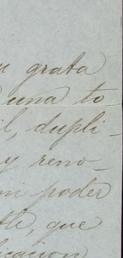 u grata
una to
il, dupli-
y reno-
un poder
ble, que
licacion